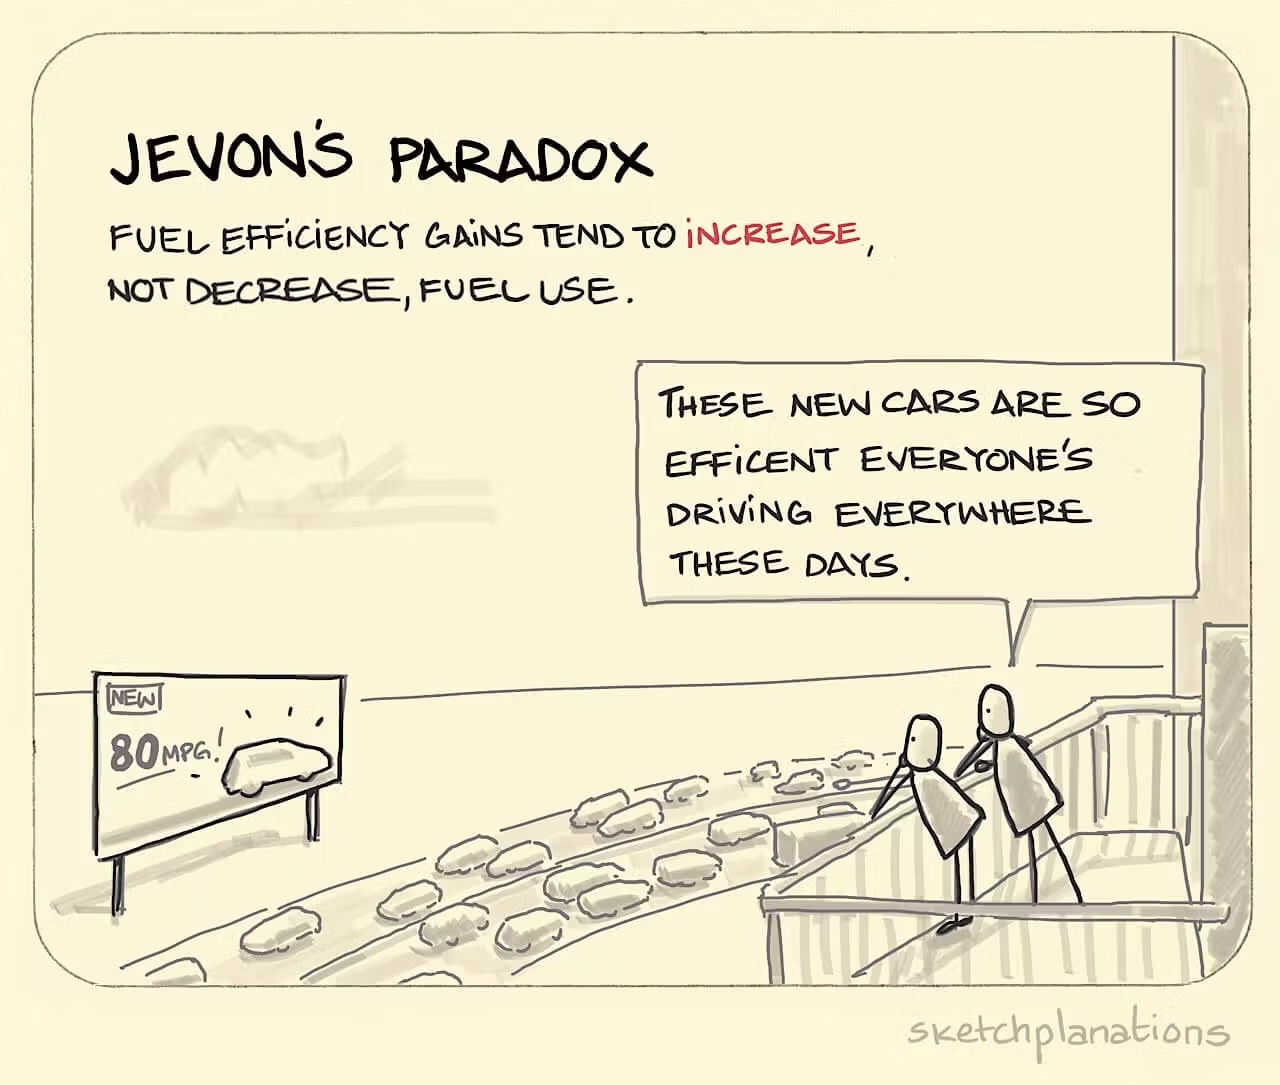 JEVON'S PARADOX
FUEL EFFICIENCY GAINS TEND TO INCREASE,
NOT DECREASE, FUEL USE.
THESE NEW CARS ARE SO
EFFICENT EVERYONE'S
DRIVING EVERYWHERE
THESE DAYS.
NEW
80 MPG!
sketchplanations